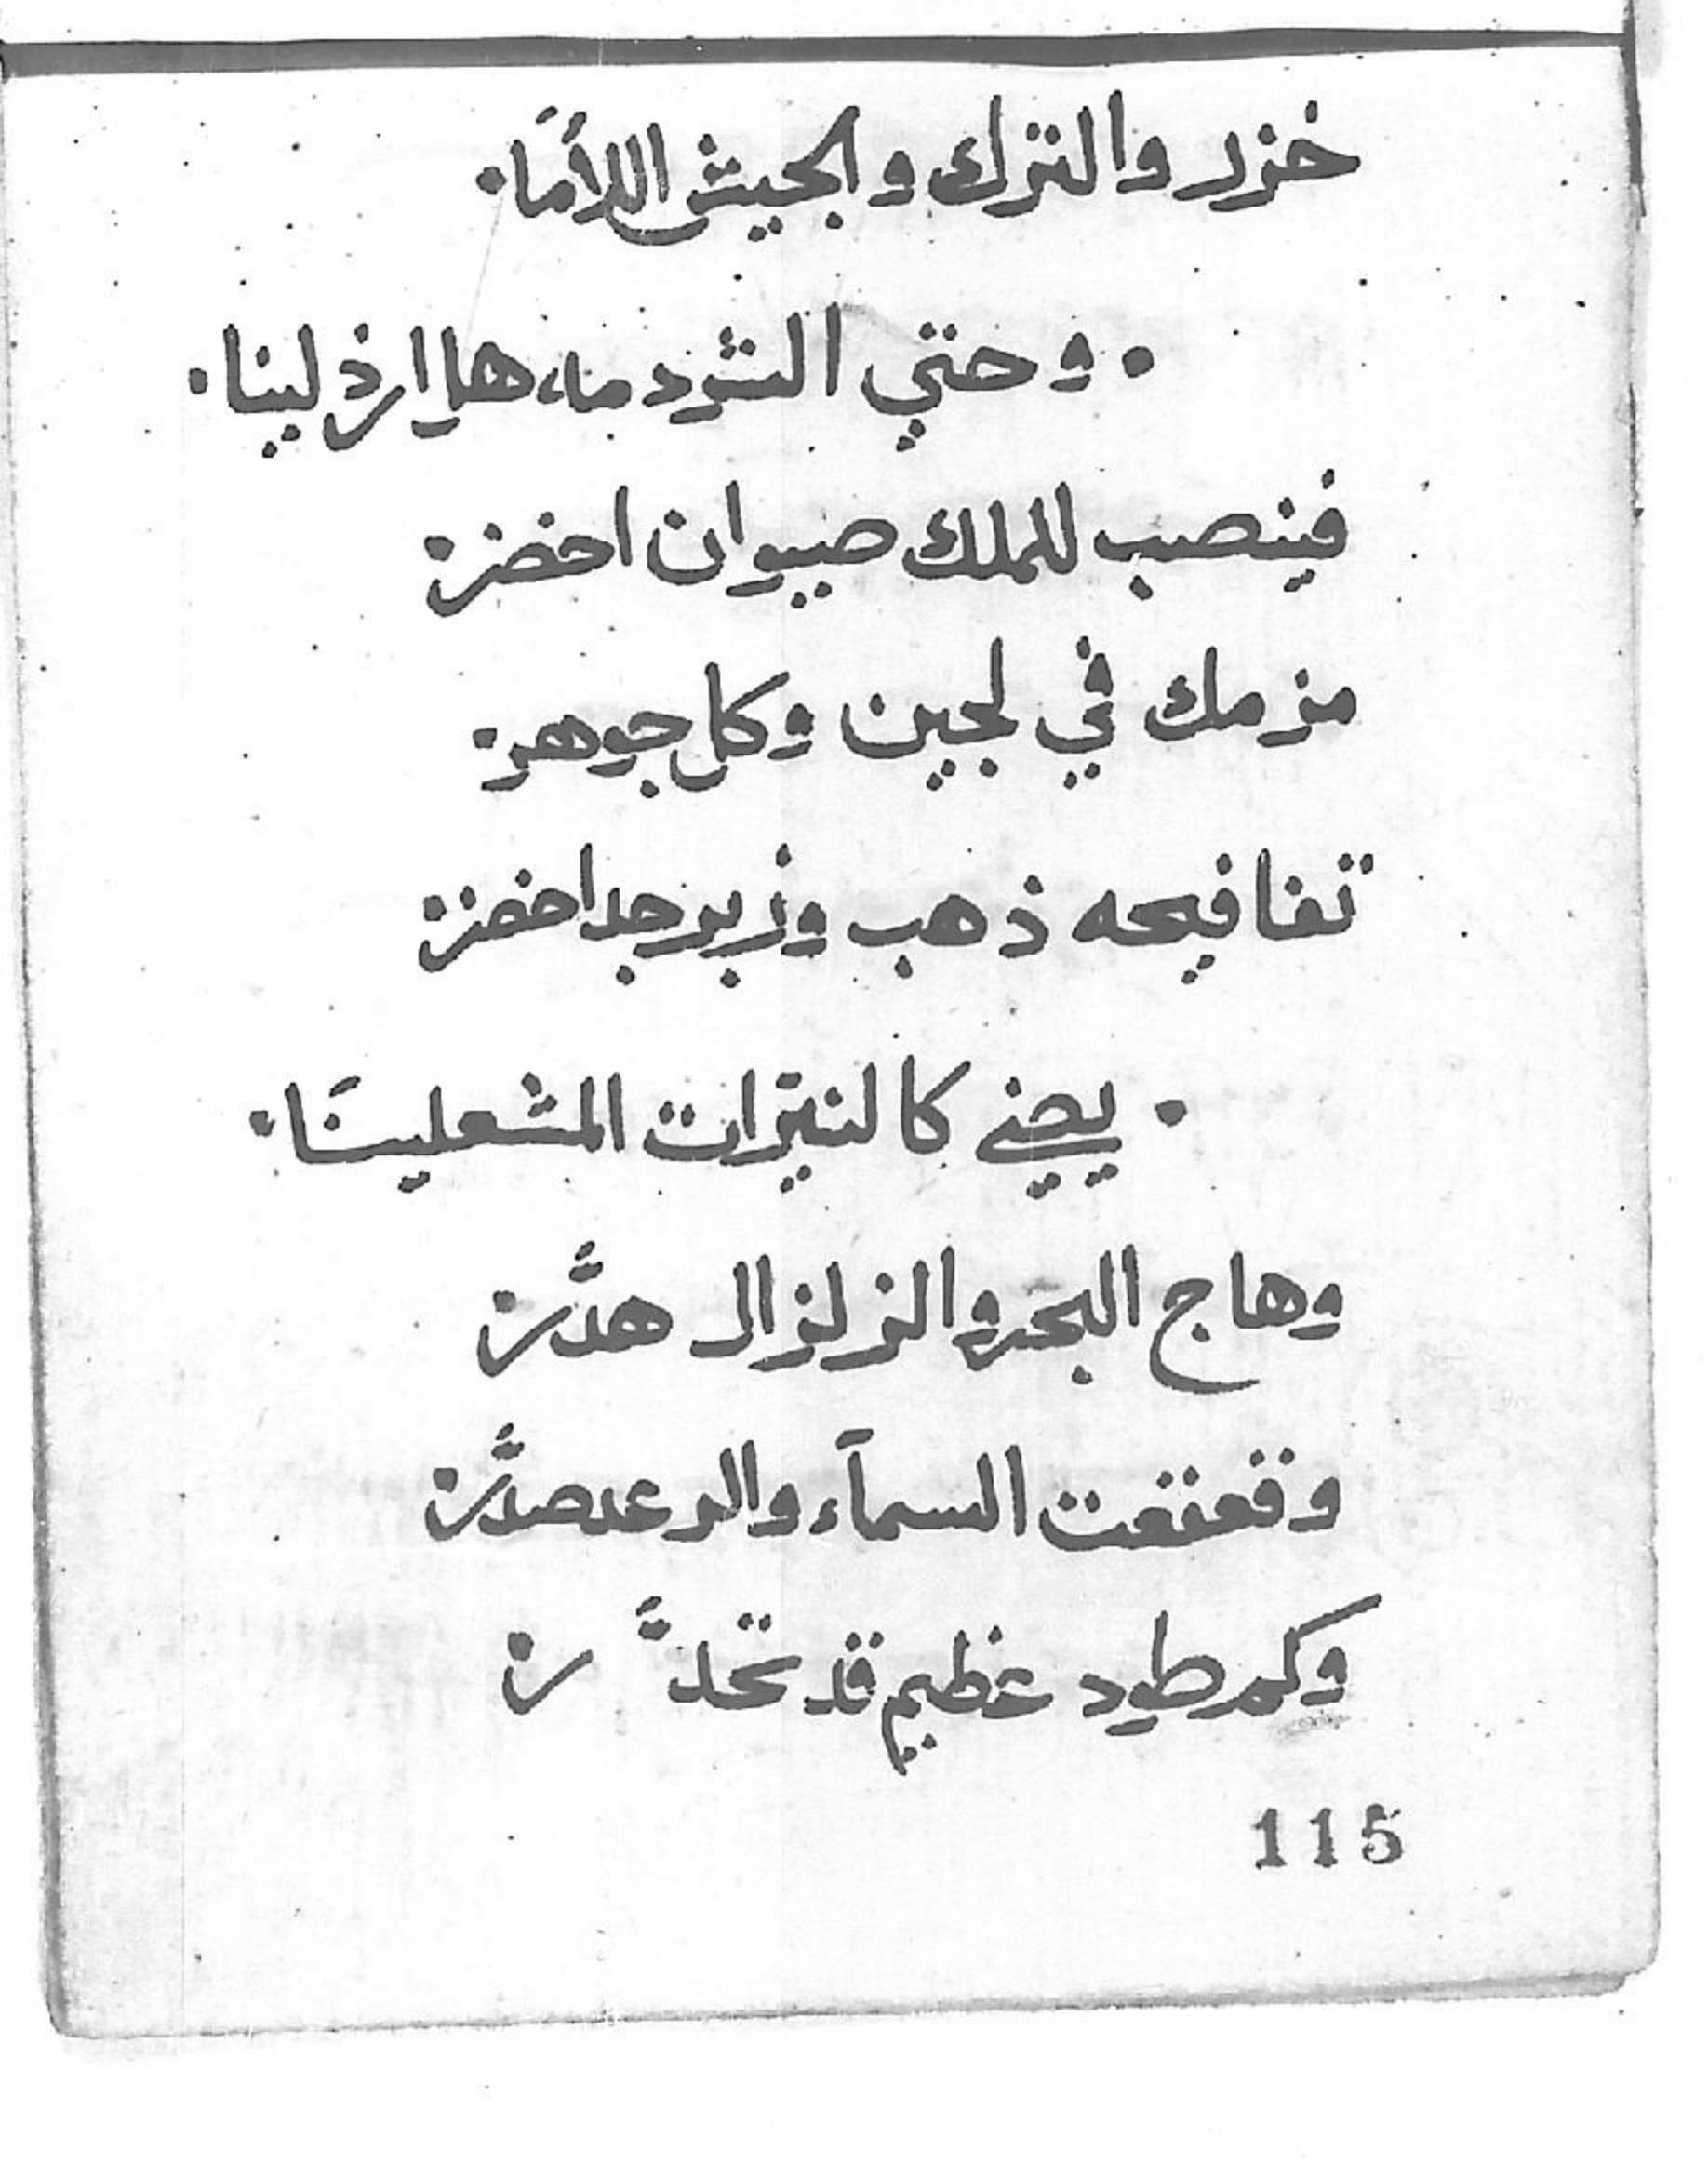 خزر والترك والجيش اللأمَا·
· وحتي السُود مناهاا ارذلينا·
فينصب للملك صيوان اخضر
مزمك في لجين وكل جوهر
تفافيحه ذهب وزبرجد اخضر
· يضي كالنيّرات المشعلينَا·
وهاج البحر والزلزال هدَّر
وقعقعت السمآء والرعد صدَّر
وكم طود عظيم قد تحدَّر
115